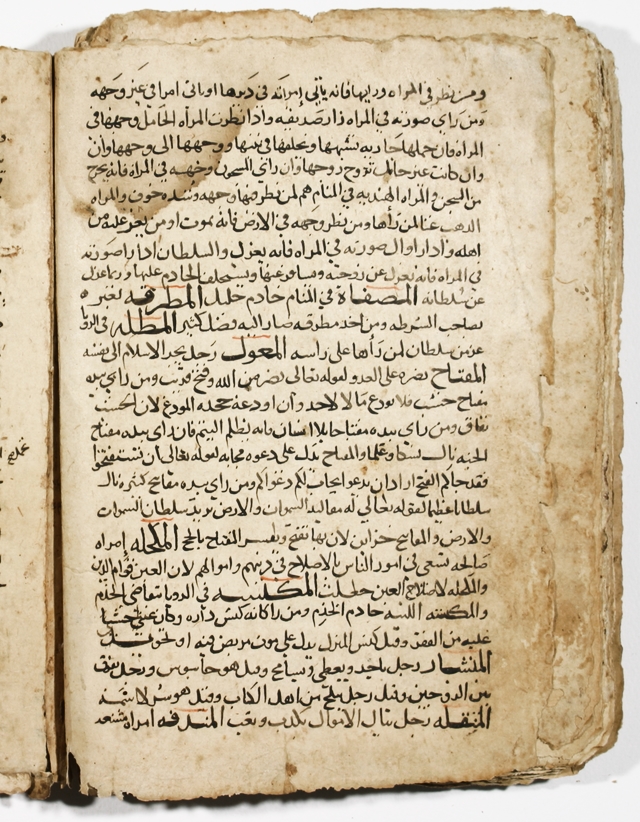 ومن نظر في المراه ورايها فانه ياتي امراته في دبرها او راتى امرا في غير وجهه
ومن راي صورته في المراه زار صديقه واذا نظرت المرأه الحامل وجهها في
المراه فان حملها جاريه تشبهها وتخلفها في بيتها ووجهها الى وجهها وان
وان كانت غير حامل تزوج زوجها وان راى المسجون وجهه في المراه فانه يخرج
من السجن والمراه الهنديه في المنام هم لمن نظر فيها وجهه وشده خوف والمراه
الذهب غنا لمن رأها ومن نظر وجهه في الارض فانه يموت او من يعز عليه من
اهله واذا راوا ل صورته في المراه فانه يعزل والسلطان اذا راصورته
في المراه فانه يعزل عن زوجته وعليها وربما عزل
عن سلطانه المصفاة في المنام خادم جليل المطرقه
صاحب الشرطه ومن اخذ مطرقه صار اليه فضل كثير المظله في الرويا
عز من سلطان لمن رأها على راسه المعول رجل يجر الاسلام الى نفسه
المفتاح نصره على العدو لقوله تعالى نصر من الله وفتح قريب ومن راي بيده
مفتاح خشب فلا يودع مالا لاحد وان اودعه جحده المودع لان الخشب
نفاق ومن راى بيده مفتاحا بلا اسنان فانه يظلم اليتيم فان راى بيده مفتاح
الجنه نال نسكا وعلما والمفتاح يدل على دعوه مجابه لقوله تعالى ان تستفتحوا
فقد جاكم الفتح اراد ان تدعوا يجاب لكم دعواكم ومن راى بيده مفاتيح كثيره نال
سلطانا عظيما لقوله تعالى له مقاليد السموات والارض يريد سلطان السموات
والارض والمفاتيح خزاين لان بها تفتح وتفسر المفتاح بالحج المكحله امراه
صالحه تسعى في امور الناس بالاصلاح في دينهم واموالهم لان العين قوام الدين
والمكحله لاصلاح العين جعلت المكنسه في الرويا تقاضي الخدم
والمكنسه اللينه خادم الخدم ومن راى كانه كنس داره وكان غني خشيا
عليه من الفقر وقيل كنس المنزل يدل على موت مريض فيه او تحول
المنشار رجل ياخذ ويعطي ويسامح وقيل هو جاسوس ورجل يفرق
بين الزوجين وقيل رجل ينكح من اهل الكتاب وقيل هو
المنقله رجل ينال الاموال بكد وتعب المندفه امراه مشنعه